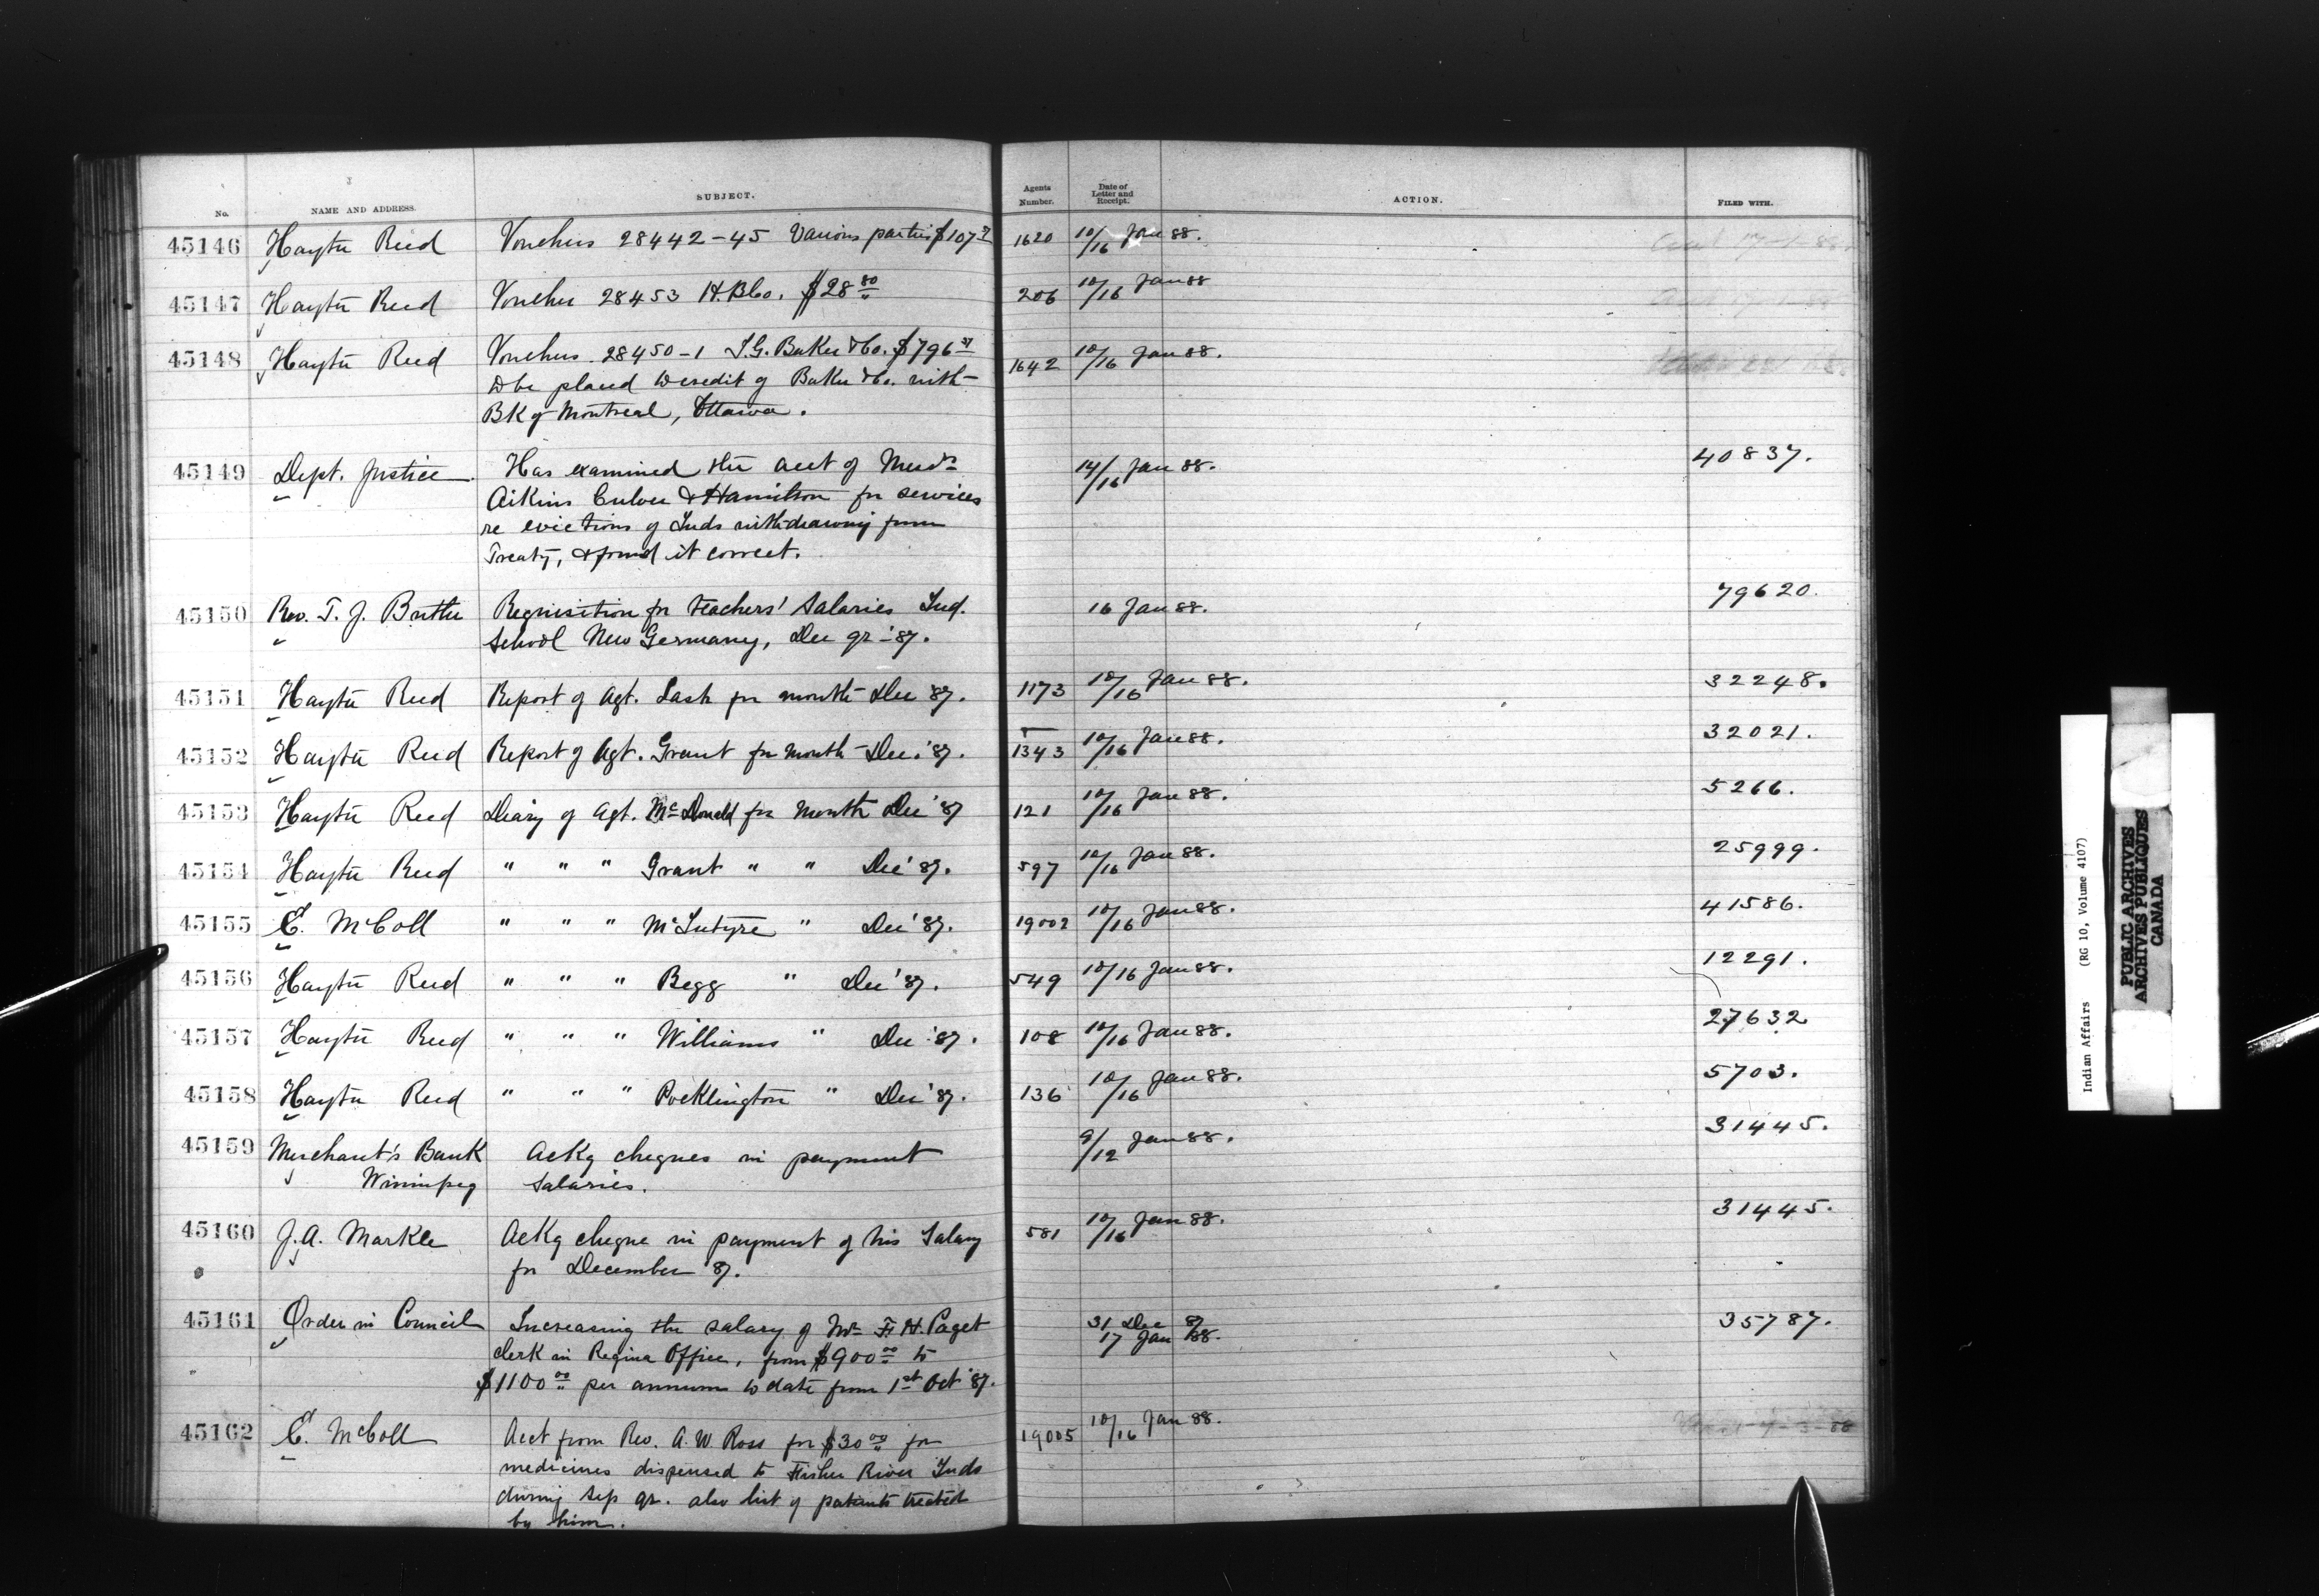 No. NAME AND ADDRESS. SUBJECT. Agents Number. Date of Letter and Receipt. ACTION. FILED WITH.
45146 Hayter Reed Vouchers 28442-45 Various parties $107 1620 10/16 Jan 88.
45147 Hayter Reed Voucher 28453 H.B.Co. $28 80 206 10/16 Jan 88
45148 Hayter Reed Vouchers 28450-1 I.G. Baker & Co. $796 1642 10/16 Jan 88.
to be placed to credit of Baker & Co. with
Bk of Montreal, Ottawa.
45149 Dept. Justice. Has examined the acct of Messrs 14/16 Jan 88. 40837.
Aikins Culver & Hamilton for services
re evictions of Inds withdrawing from
Treaty, & found it correct.
45150 Rev. T. J. Butler Requisition for teachers' Salaries Ind. 16 Jan 88. 79620.
School New Germany, Dec qr - '87.
45151 Hayter Reed Report of Agt. Lash for month Dec '87. 1173 10/16 Jan 88. 32248.
45152 Hayter Reed Report of Agt. Grant for month Dec. '87. 1343 10/16 Jan 88. 32021.
45153 Hayter Reed Diary of Agt. McDonald for Month Dec '87 121 10/16 Jan 88. 5266.
45154 Hayter Reed " " " Grant " " Dec '87. 597 10/16 Jan 88. 25999.
45155 E. McColl " " " McIntyre " Dec '87. 19002 10/16 Jan 88. 41586.
45156 Hayter Reed " " " Begg " Dec '87. 549 10/16 Jan 88. 12291.
45157 Hayter Reed " " " Williams " Dec '87. 108 10/16 Jan 88. 27632
45158 Hayter Reed " " " Pocklington " Dec '87. 136 10/16 Jan 88. 5703.
45159 Merchant's Bank Ackg cheques in payment 9/12 Jan 88. 31445.
Winnipeg Salaries.
45160 J.A. Markle Ackg cheque in payment of his Salary 581 10/16 Jan 88. 31445.
for December 87.
45161 Order in Council Increasing the salary of Mr F. H. Paget 31 Dec 87 35787.
clerk in Regina Office, from $900 00 to 17 Jan 88.
$1100 00 per annum to date from 1st Oct '87.
45162 E. McColl Acct from Rev. A. W. Ross for $30 00 for 19005 10/16 Jan 88.
medicines dispensed to Fisher River Inds
during Sep qr. also list of patients treated
by him.
Indian Affairs (RG 10, Volume 4107)
PUBLIC ARCHIVES
ARCHIVES PUBLIQUES
CANADA